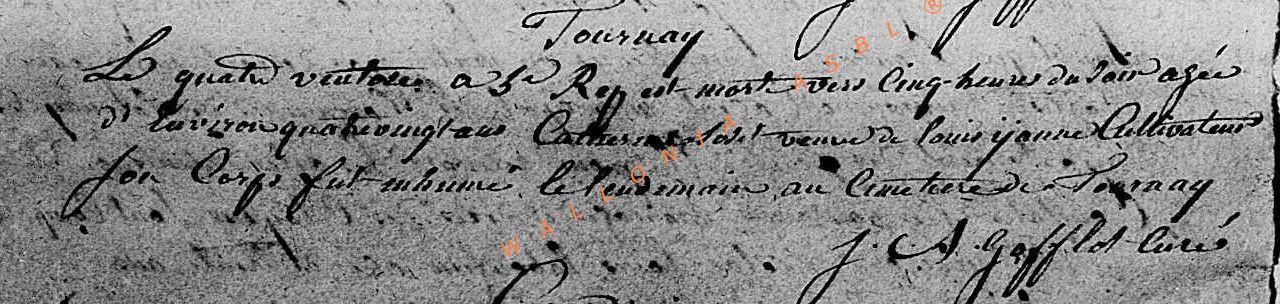 Tournay
Le quatre ventose a 5e Rep est morte vers Cinq-heures du Soir agée
d'Environ quatrevingt ans Catherine veuve de louis ijanne Cultivateur
Son Corps fut inhumé le lendemain au Cimetiere de Tournay
J. A. Gofflot Curé
WALLONIA ASBL ®